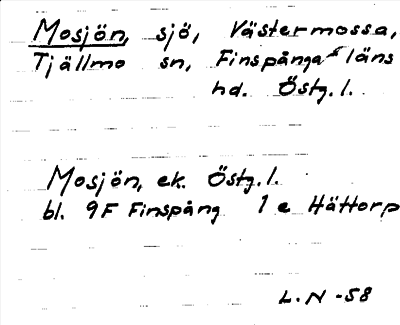 Mosjön, sjö, Västermossa,
Tjällmo sn, Finspånga läns
hd. Östg. l.
Mosjön, ek. Östg. l.
bl. 9F Finspång 1 e Hättorp
L. N -58